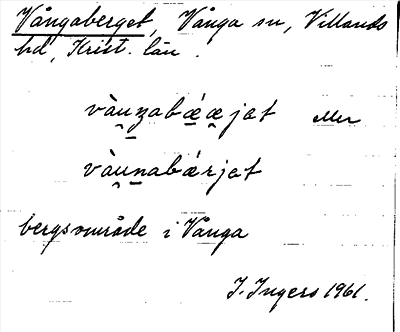 Vångaberget, Vånga sn, Villands
hd, Krist. län.
vàu̯n̠zabǽ̠æ̯jət eller
vàu̯n̠nabǽrjət
bergsområde i Vånga
I. Ingers 1961.